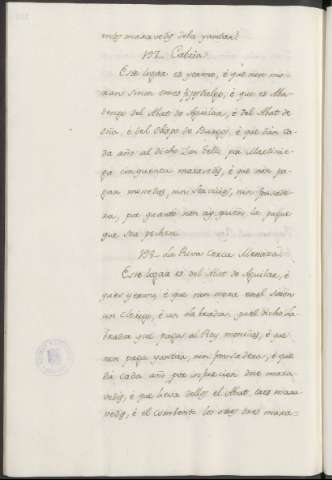 entos maravedis de la yantar.
192.. Cabria.
Este logar es yermo, é que non mo-
ran sinon omes fijosdalgo, é que es Aba-
dengo del Abat de Aguilar, é del Abat de
é del Obispo de Burgos, é que dan ca-
da año al dicho Don Tello por Martinie-
ga cinquenta maravedis, é que non pa-
gan monedas, nin servicios, nin fonsade-
ra, por quanto non ay quien la pague
que sea pechero.
193.. La Puerta
Este logar es del Abat de Aguilar, é
que es yermo, é que non mora en el sinon
un Clerigo, é un Labrador, que el dicho La-
brador que paga al Rey monedas, é que
non paga yantar, nin fonsadera, é que
da cada año por infurcion dose mara-
vedis, é que lieva dellos el Abat, tres mara-
vedis, é el combento los otros tres mara-